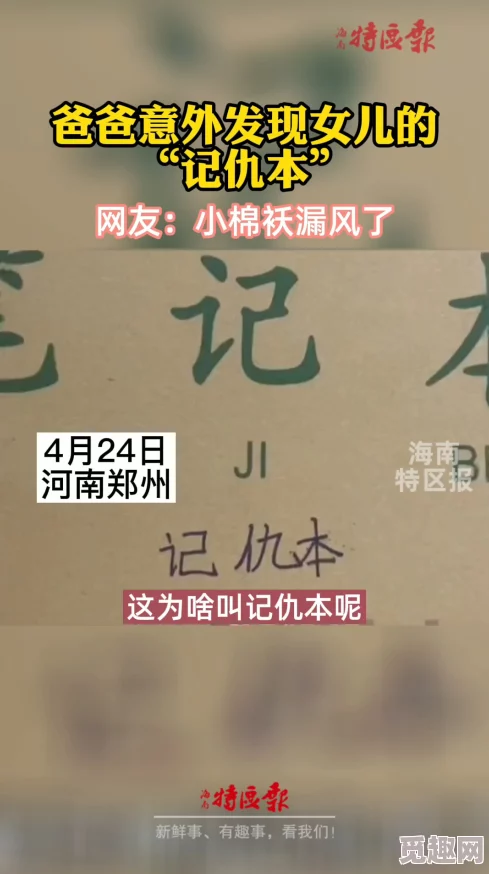 海南特区报
爸爸意外发现女儿的
“记仇本”
网友：小棉袄漏风了
笔记本
JI
4月24日
河南郑州
海南
特区报
记仇本
这为啥叫记仇本呢
海南特区报
新鲜事、有趣事，看我们！
觅趣网